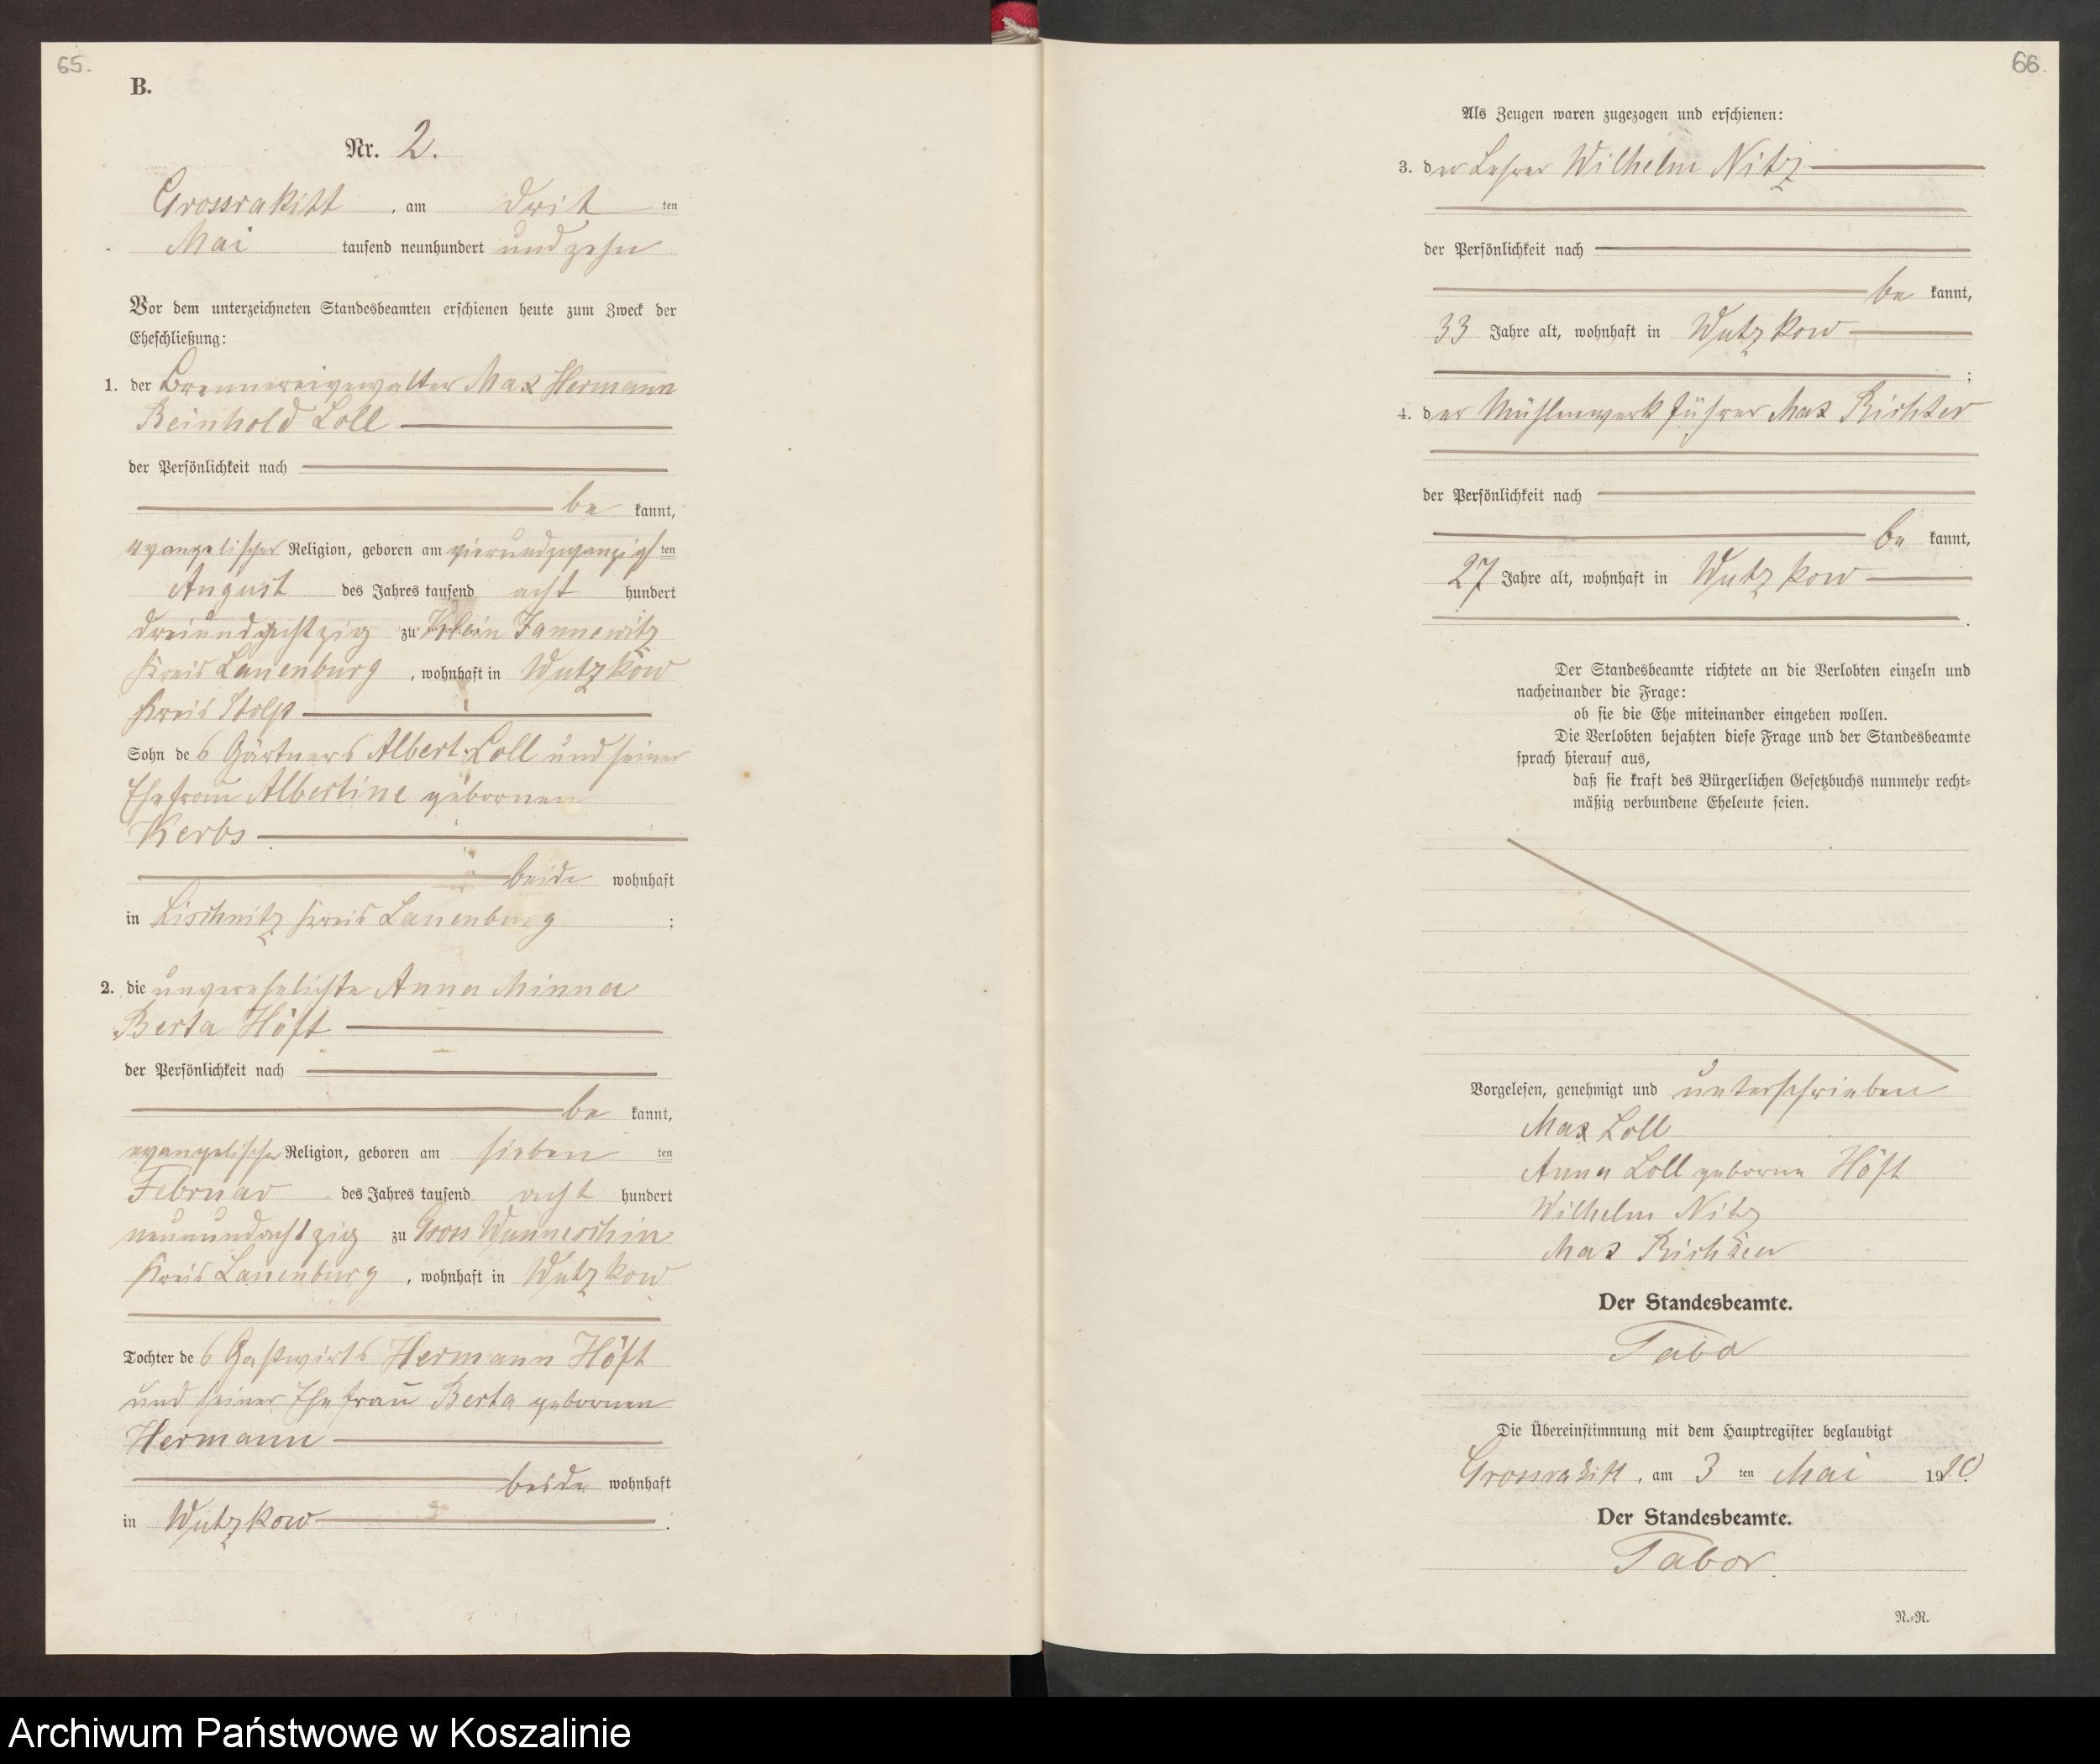 65.
B.
Nr. 2.
Grossrakitt, am dritten
Mai tausend neunhundert und zehn
Vor dem unterzeichneten Standesbeamten erschienen heute zum Zweck der
Eheschließung:
1. der Brennereiverwalter Max Hermann
Reinhold Loll
der Persönlichkeit nach
be kannt,
evangelischer Religion, geboren am vierundzwanzigsten
August des Jahres tausend acht hundert
dreiundachtzig zu Klein Jannewitz
Kreis Lauenburg, wohnhaft in Wutzkow
Kreis Stolp
Sohn des Gärtners Albert Loll und seiner
Ehefrau Albertine gebornen
Kerbs
beide wohnhaft
in Lischnitz Kreis Lauenburg ;
2. die unverehelichte Anna Minna
Berta Höft
der Persönlichkeit nach
be kannt,
evangelischer Religion, geboren am siebenten
Februar des Jahres tausend acht hundert
neunundachtzig zu Gross Wunneschin
Kreis Lauenburg, wohnhaft in Wutzkow
Tochter des Gastwirts Hermann Höft
und seiner Ehefrau Berta gebornen
Hermann
beide wohnhaft
in Wutzkow.
66.
Als Zeugen waren zugezogen und erschienen:
3. der Lehrer Wilhelm Nitz
der Persönlichkeit nach
be kannt,
33 Jahre alt, wohnhaft in Wutzkow
;
4. der Mühlenwerkführer Max Richter
der Persönlichkeit nach
be kannt,
27 Jahre alt, wohnhaft in Wutzkow
.
Der Standesbeamte richtete an die Verlobten einzeln und
nacheinander die Frage:
ob sie die Ehe miteinander eingehen wollen.
Die Verlobten bejahten diese Frage und der Standesbeamte
sprach hierauf aus,
daß sie kraft des Bürgerlichen Gesetzbuchs nunmehr recht-
mäßig verbundene Eheleute seien.
Vorgelesen, genehmigt und unterschrieben
Max Loll
Anna Loll geborne Höft
Wilhelm Nitz
Max Richter
Der Standesbeamte.
Tabor
Die Übereinstimmung mit dem Hauptregister beglaubigt
Grossrakitt, am 3 ten Mai 1910.
Der Standesbeamte.
Tabor.
N.-R.
Archiwum Państwowe w Koszalinie